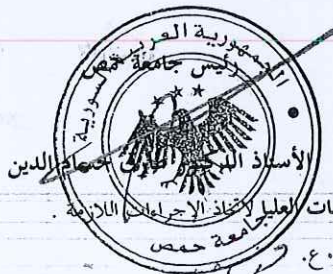 الجمهورية العربية السورية
رئيس جامعة حمص
الأستاذ الدكتور طارق حسام الدين
ات العليا لاتخاذ الإجراءات اللازمة .
جامعة حمص
ع.